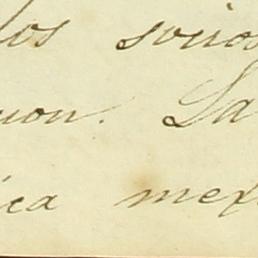 los
ion. La
ica mex